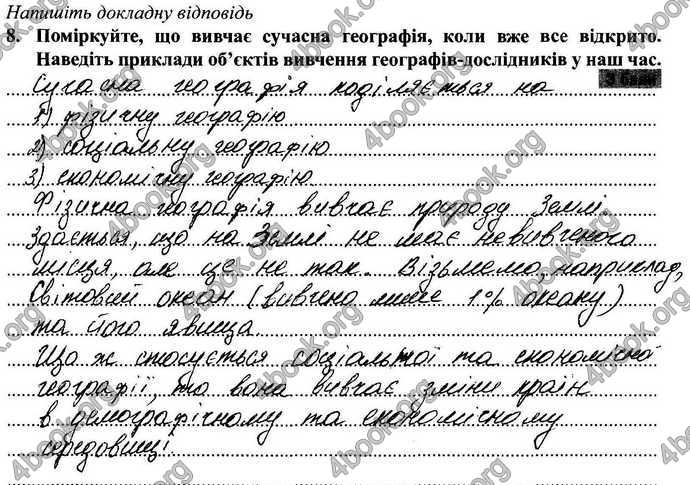 Напишіть докладну відповідь
8. Поміркуйте, що вивчає сучасна географія, коли вже все відкрито.
Наведіть приклади об’єктів вивчення географів-дослідників у наш час.
Сучасна географія поділяється на
1) фізичну географію
2) соціальну географію
3) економічну географію
Фізична географія вивчає природу Землі.
Здається, що на Землі не має невивченого
місця, але це не так. Візьмемо, наприклад,
Світовий океан (вивчено лише 1% океану)
та його явища
Що ж стосується соціальної та економічної
географії, то вона вивчає зміни країн
в демографічному та економічному
середовищі.
4book.org